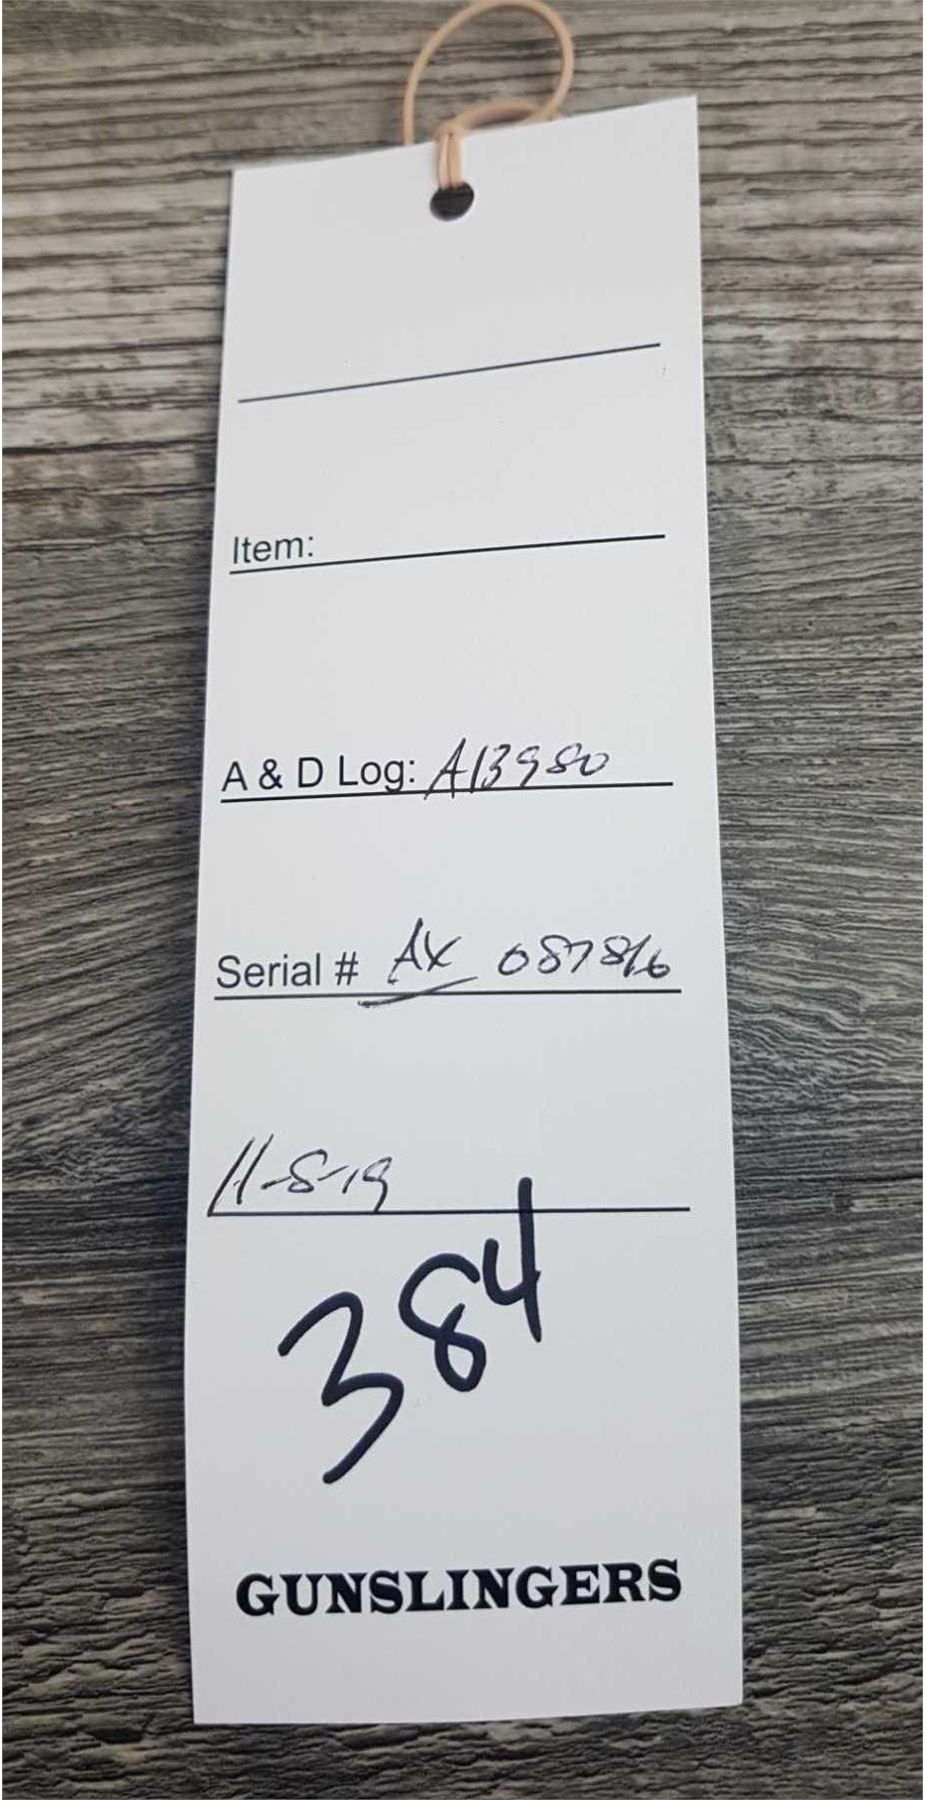 Item:
A & D Log: A13980
Serial # AX 087816
11-8-19
384
GUNSLINGERS